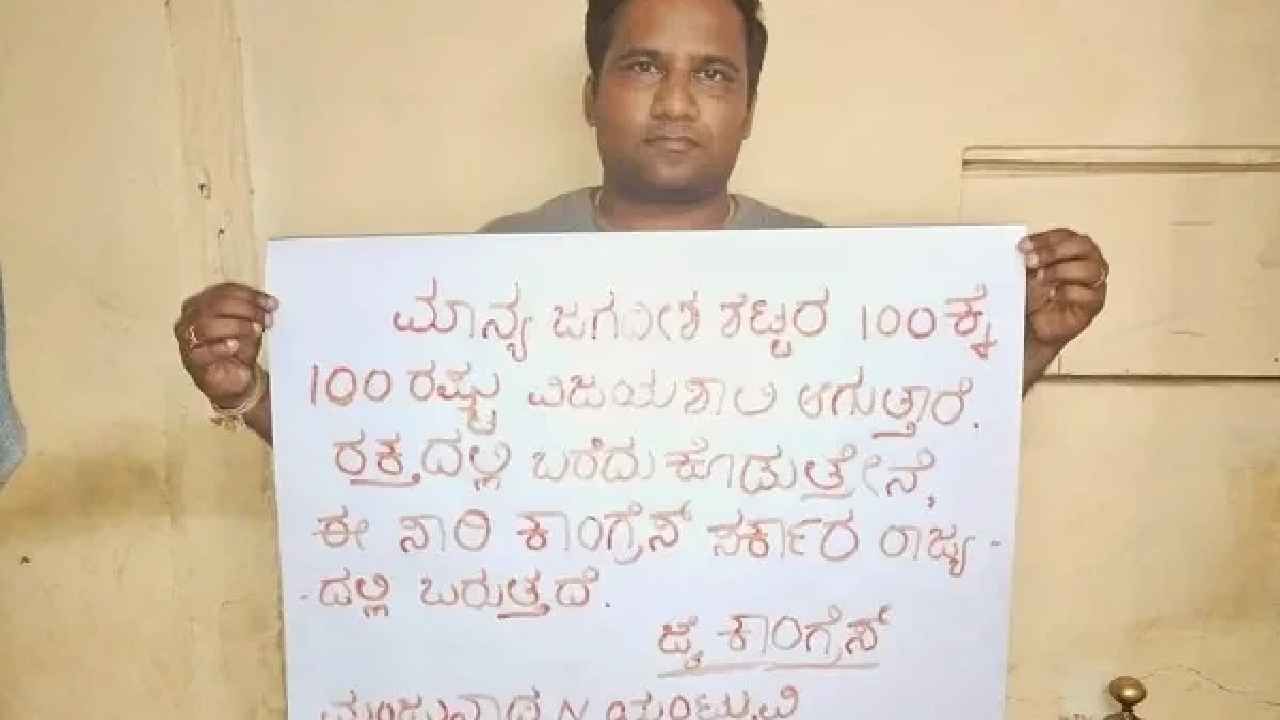 ಮಾನ್ಯ ಜಗದೀಶ ಶೆಟ್ಟರ 100ಕ್ಕೆ
100 ರಷ್ಟು ವಿಜಯಶಾಲಿ ಆಗುತ್ತಾರೆ.
ರಕ್ತದಲ್ಲಿ ಬರೆದು ಕೊಡುತ್ತೇನೆ,
ಈ ಸಾರಿ ಕಾಂಗ್ರೆಸ್ ಸರ್ಕಾರ ರಾಜ್ಯ -
- ದಲ್ಲಿ ಬರುತ್ತದೆ.
ಜೈ ಕಾಂಗ್ರೆಸ್
ಮಂಜುನಾಥ N